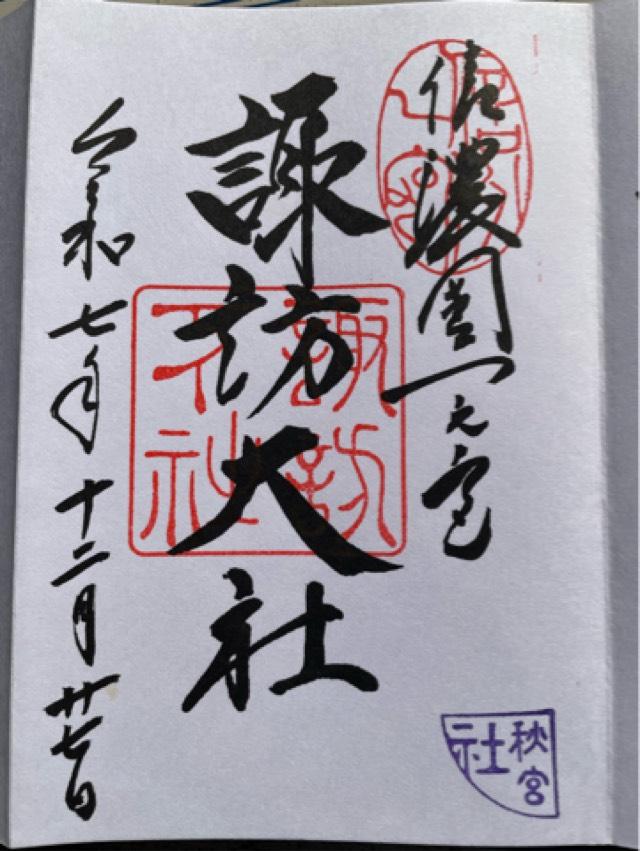 信濃國一之宮
諏訪大社
令和七年十二月廿七日
諏訪大社
秋宮
社